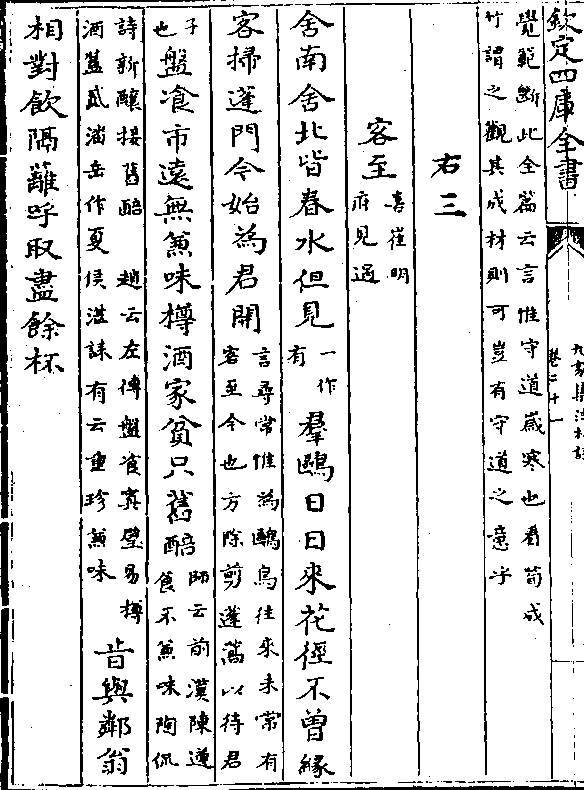 欽定四庫全書
卷二十一
覺範斷此全篇云言惟守道歲寒也看筍成
竹謂之觀其成材則可豈有守道之意乎
右三
客至
喜崔明
府見過
舍南舍北皆春水但見
一作
有
羣鷗日日來花徑不曾緣
客掃蓬門今始為君開
言尋常惟為鷗鳥往來未常有
客至今也方除剪蓬蒿以待君
子
也
盤飡市遠無兼味樽酒家貧只舊醅
師云前漢陳遵
食不兼味陶侃
詩新釀接舊醅 趙云左傳盤飡寘璧易樽
酒簋貳潘岳作夏侯湛誄有云重珍兼味
肯與鄰翁
相對飲隔籬呼取盡餘杯